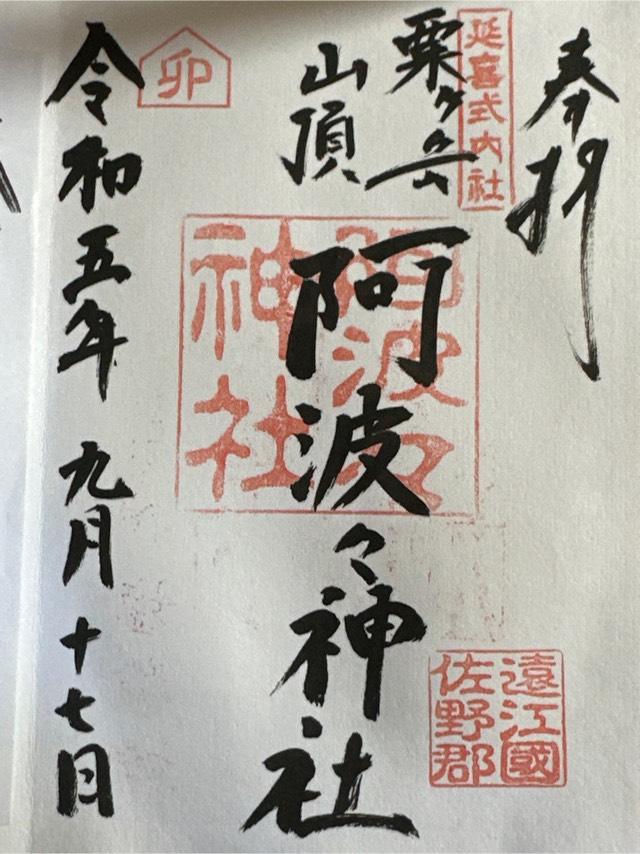 奉拝
延喜式内社
粟ヶ岳
山頂
阿波々神社
阿波々
神社
遠江國
佐野郡
卯
令和五年九月十七日